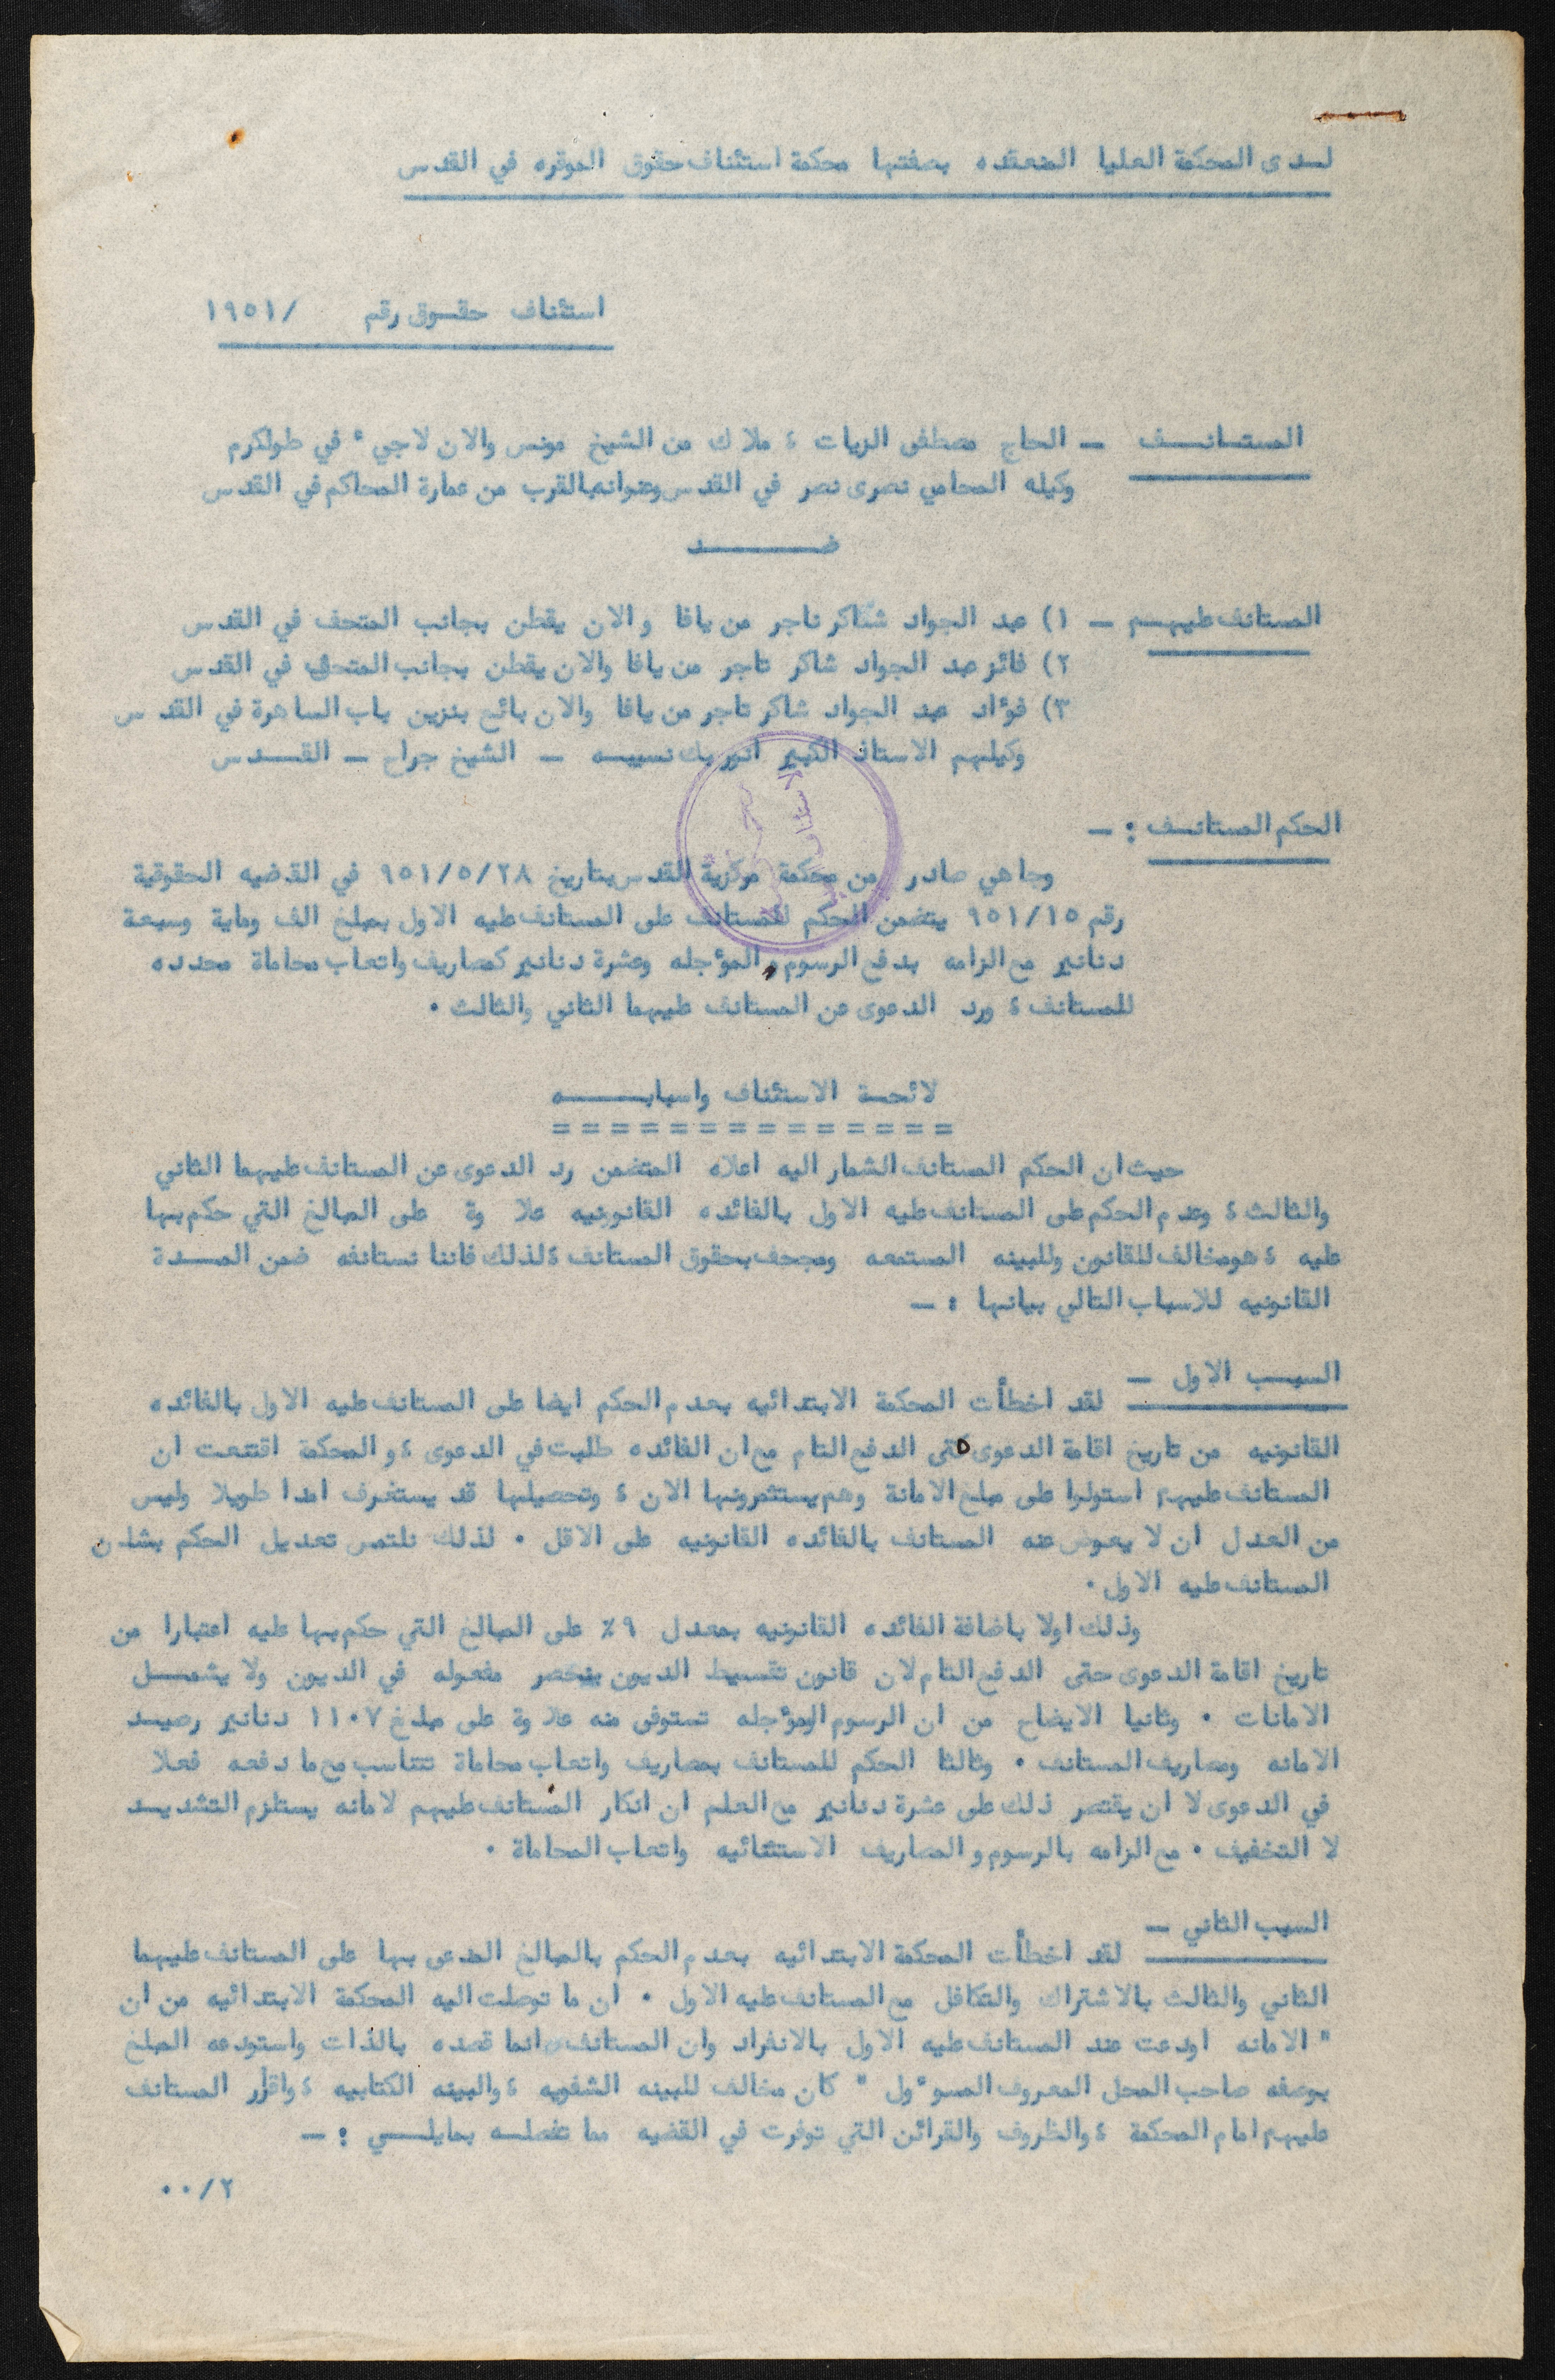 لـدى المحكمة العليا المنعقده بصفتها محكمة استئناف حقوق الموقره في القدس
استئناف حقـوق رقم /١٩٥١
المستـانـــف — الحاج مصطفى الزيات ، ملاك من الشيخ مونس والان لاجيء في طولكرم
وكيله المحامي نصرى نصر في القدس وعنوانه بالقرب من عمارة المحاكم في القدس
ضــــــد
المستانف عليهـم — ١) عبد الجواد شاكر تاجر من يافا والان يقطن بجانب المتحف في القدس
٢) فائز عبد الجواد شاكر تاجر من يافا والان يقطن بجانب المتحف في القدس
٣) فؤاد عبد الجواد شاكر تاجر من يافا والان بائع بنزين باب الساهرة في القدس
وكيلهم الاستاذ الكبير انور بك نسيبـه — الشيخ جراح — القــدس
الحكم المستانـف : —
وجاهي صادر من محكمة مركزية القدس بتاريخ ٩٥١/٥/٢٨ في القضيه الحقوقية
رقم ٩٥١/١٥ يتضمن الحكم للمستانف على المستانف عليه الاول بمبلغ الف وماية وسبعة
دنانير مع الزامه بدفع الرسوم المؤجله وعشرة دنانير كمصاريف واتعاب محاماة محدده
للمستانف ، ورد الدعوى عن المستانف عليهما الثاني والثالث .
لائحـة الاستئناف واسبابــــــه
= = = = = = = = = = = = = =
حيث ان الحكم المستانف الشمار اليه اعلاه المتضمن رد الدعوى عن المستانف عليهما الثاني
والثالث ، وعدم الحكم على المستانف عليه الاول بالفائده القانونيه علا وة على المبالغ التي حكم بها
عليه ، هو مخالف للقانون وللبينه المستمعه ومجحف بحقوق المستانف ، لذلك فاننا نستانفه ضمن المـدة
القانونيه للاسباب التالي بيانها : —
السبـب الاول —
لقد اخطأت المحكمة الابتدائيه بعدم الحكم ايضا على المستانف عليه الاول بالفائده
القانونيه من تاريخ اقامة الدعوى حتى الدفع التام مع ان الفائده طلبت في الدعوى ، و المحكمة اقتنعت ان
المستانف عليهم استولوا على مبلغ الامانة وهم يستثمرونها الان ، وتحصيلها قد يستغرف امدا طويلا وليس
من العدل ان لا يعوض عنه المستانف بالفائده القانونيه على الاقل . لذلك نلتمس تعديل الحكم بشان
المستانف عليه الاول .
وذلك اولا باضافة الفائده القانونيه بمعدل ٩٪ على المبالغ التي حكم بها عليه اعتبارا من
تاريخ اقامة الدعوى حتى الدفع التام لان قانون تقسيط الديون ينحصر مفعوله في الديون ولا يشمــل
الامانات . وثانيا الايضاح من ان الرسوم المؤجله تستوفى منه علا وة على مبلغ ١١٠٧ دنانير رصيـد
الامانه ومصاريف المستانف . وثالثا الحكم للمستانف بمصاريف واتعاب محاماة تتناسب مع ما دفعه فعلا
في الدعوى لا ان يقتصر ذلك على عشرة دنانير مع العلم ان انكار المستانف عليهم لامانه يستلزم التشديـد
لا التخفيف . مع الزامه بالرسوم و المصاريف الاستئنائيه واتعاب المحاماة .
السبب الثاني —
لقد اخطأت المحكمة الابتدائيه بعدم الحكم بالمبالغ المدعى بها على المستانف عليهما
الثاني والثالث بالاشتراك والتكافل مع المستانف عليه الاول . ان ما توصلت اليه المحكمة الابتدائيه من ان
" الامانه اودعت عند المستانف عليه الاول بالانفراد وان المستانف انما قصده بالذات واستودعه المبلغ
بوصفه صاحب المحل المعروف المسوءول " كان مخالف للبينه الشفويه ، والبينه الكتابيه ، واقرار المستانف
عليهم امام المحكمة ، والظروف والقرائن التي توفرت في القضيه مما نفصلـه بمايلـي : —
٠٠/٢